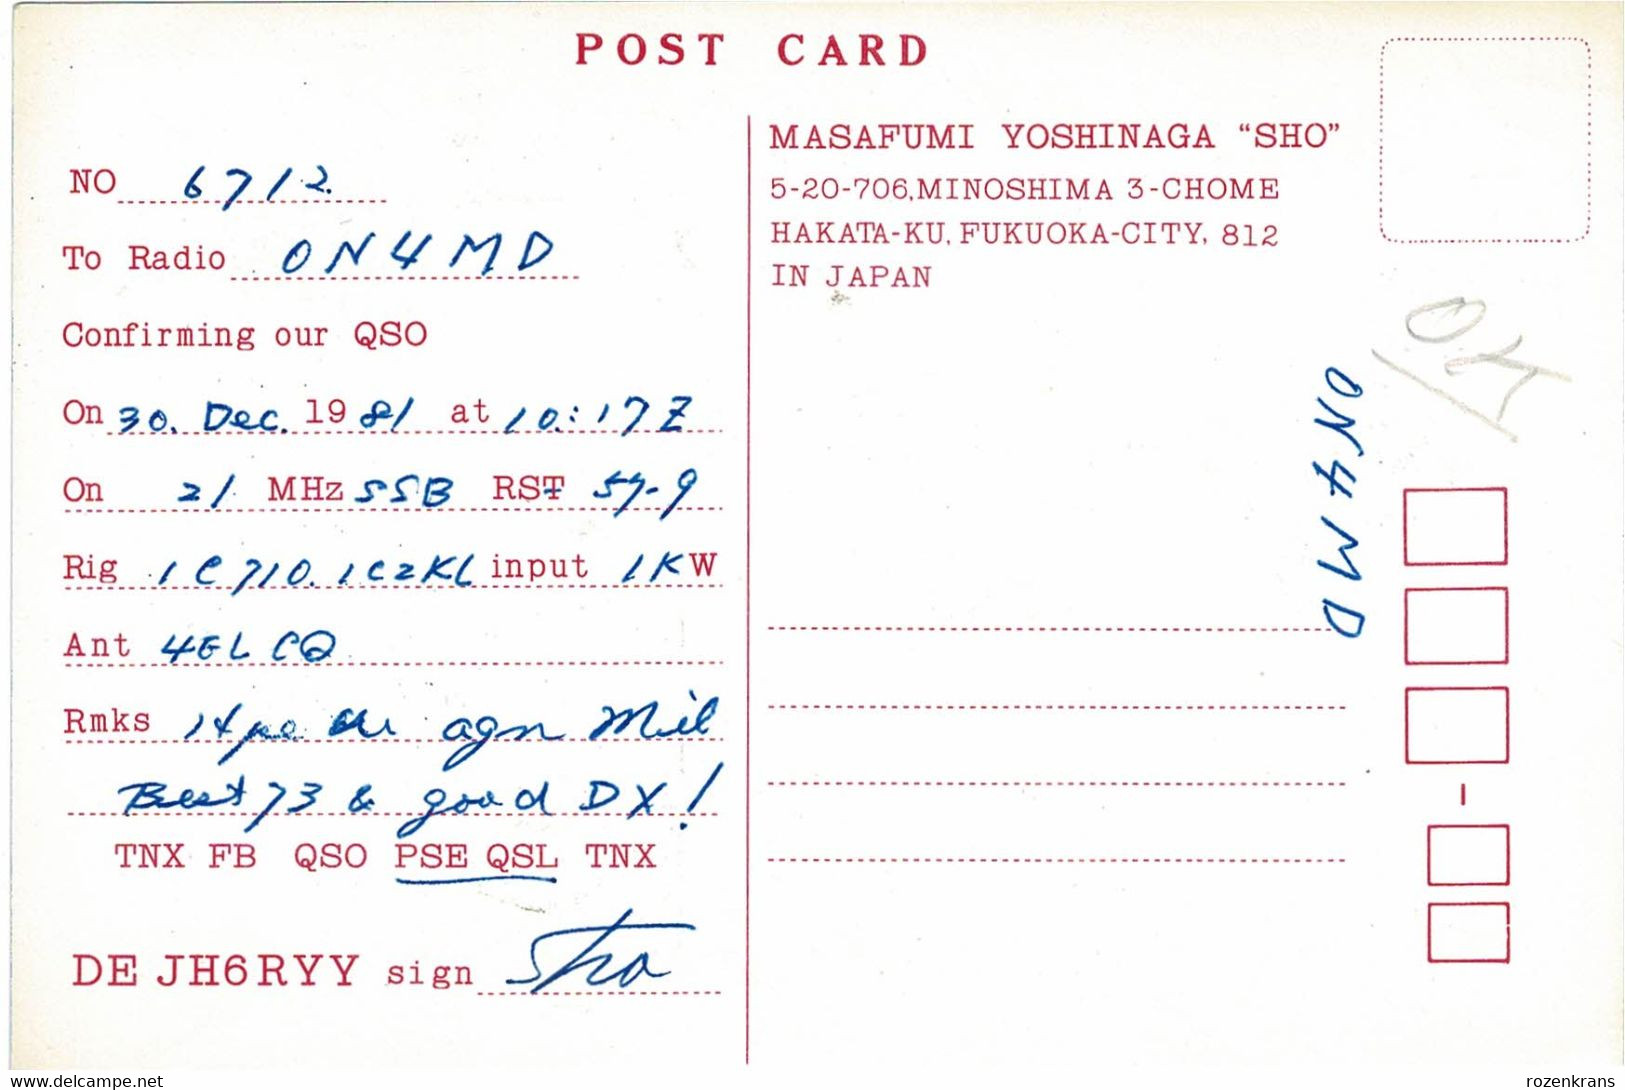 POST CARD
NO 6712
To Radio ON4MD
Confirming our QSO
On 30. Dec. 1981 at 10:17Z
On 21 MHz SSB RST 59-9
Rig IC710. IC2KL input 1KW
Ant 4EL CQ
Rmks agn
Best 73 & good DX!
TNX FB QSO PSE QSL TNX
DE JH6RYY sign Sho
MASAFUMI YOSHINAGA “SHO”
5-20-706, MINOSHIMA 3-CHOME
HAKATA-KU, FUKUOKA-CITY, 812
IN JAPAN
OK
ON4MD
delcampe.net
rozenkrans